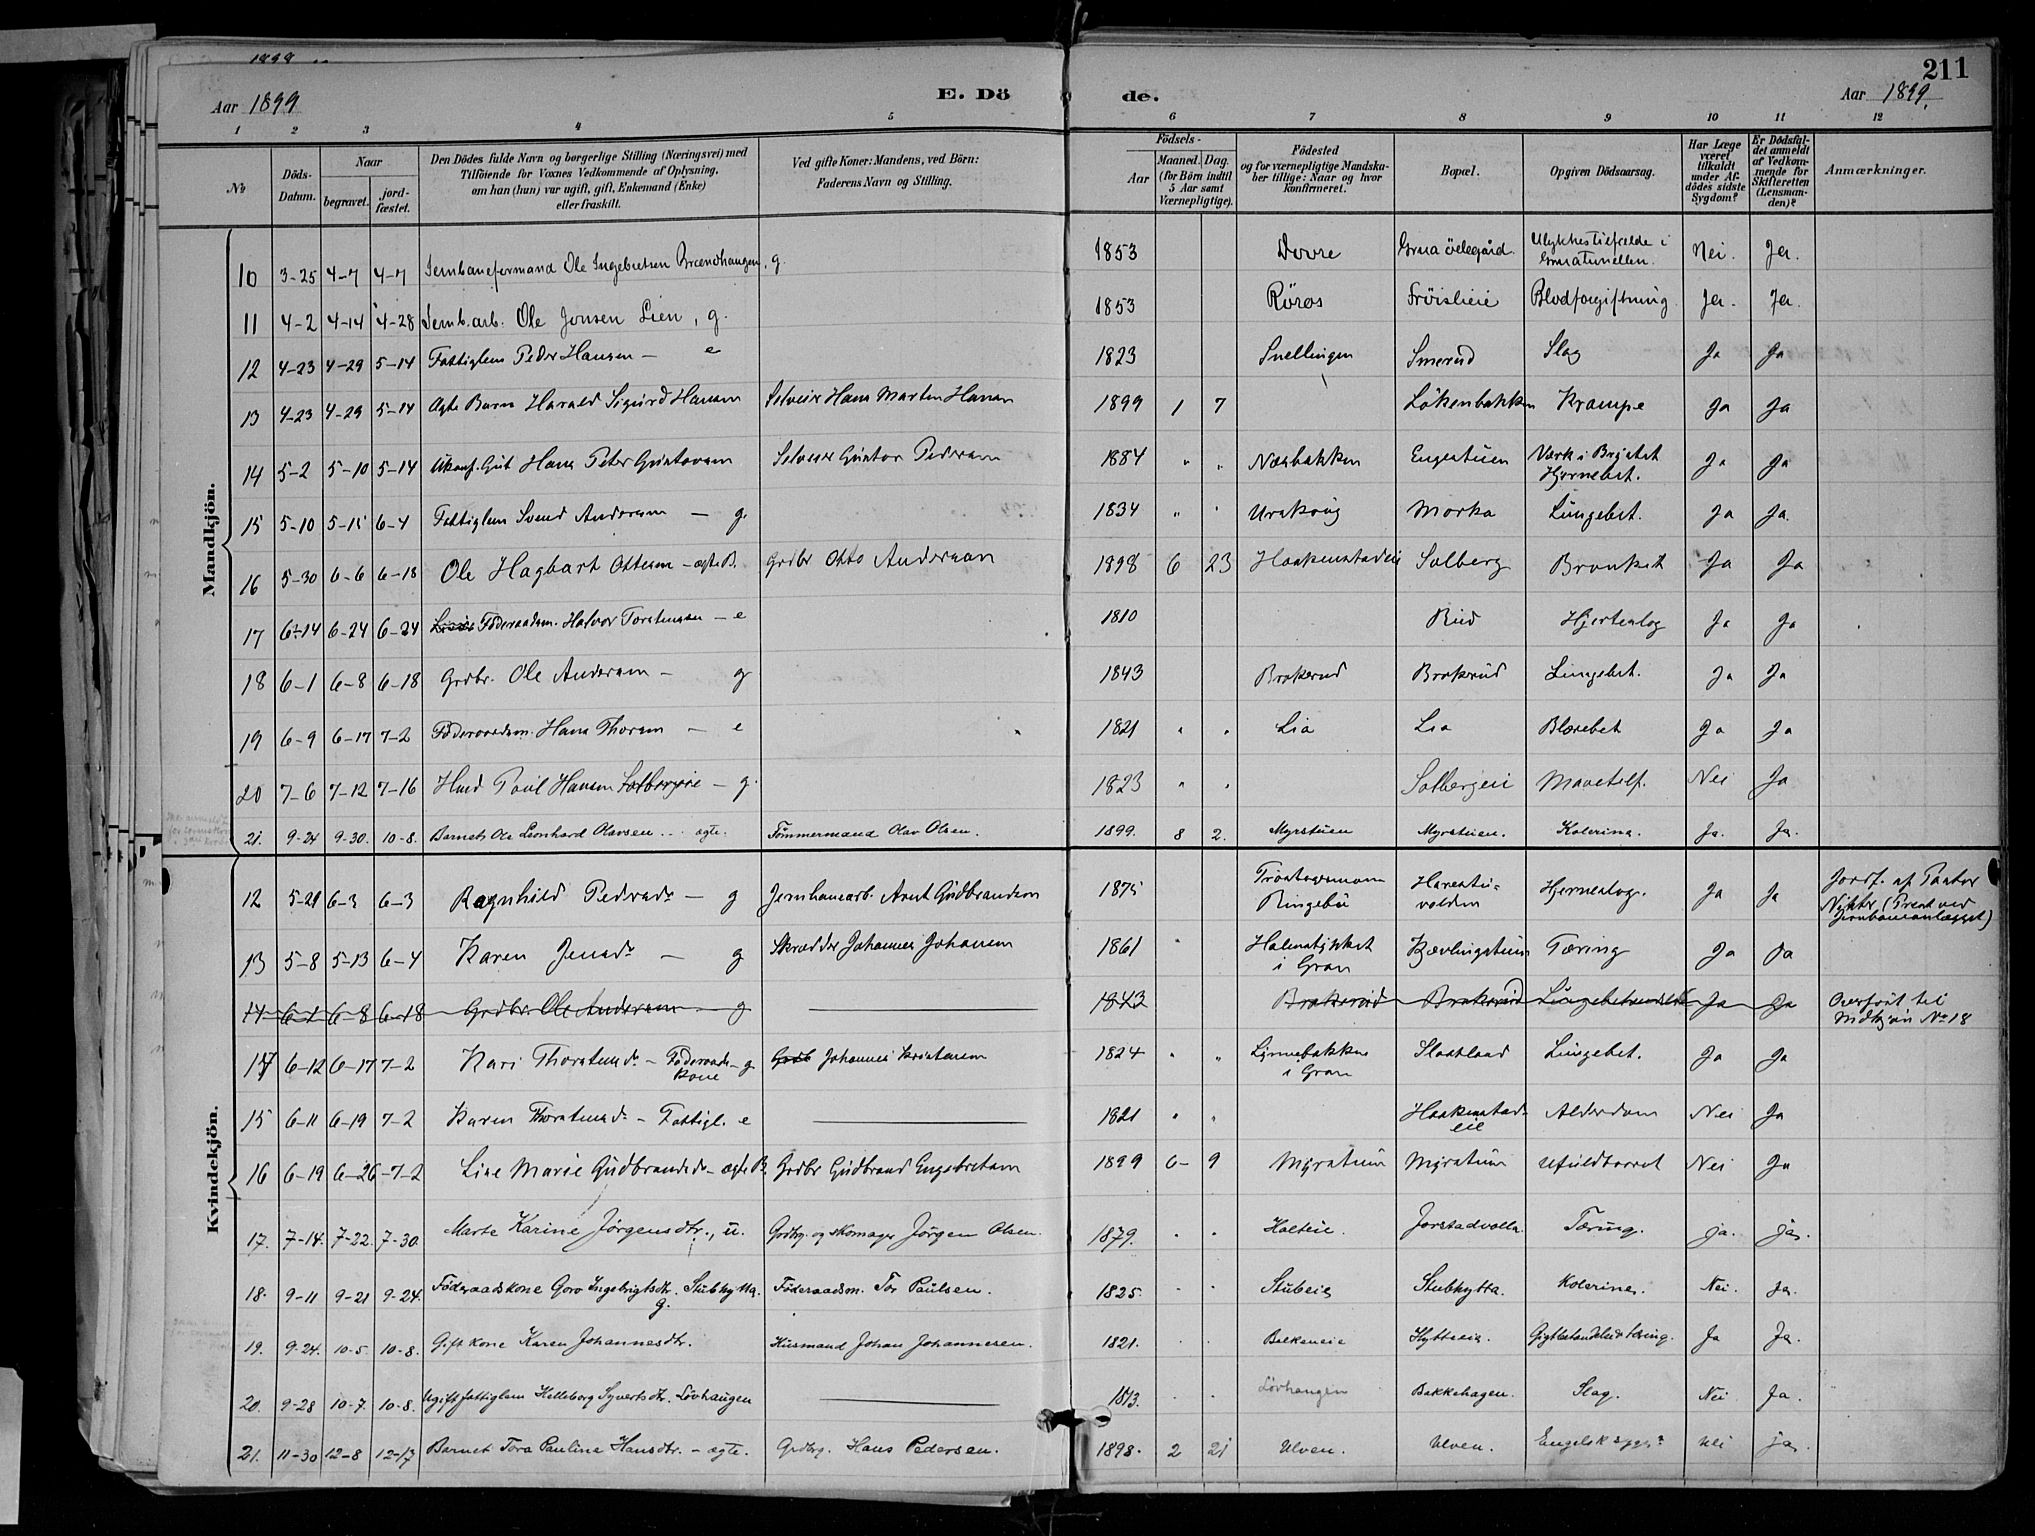 1898
211
Aar 1899
E. Dö
de.
Aar 1899.
1 2 3 4 5 6 7 8 9 10 11 12
No
Döds-Datum.
Naar
begravet.
jord-fæstet.
Den Dödes fulde Navn og borgerlige Stilling (Næringsvei) med
Tilföiende for Voxnes Vedkommende af Oplysning,
om han (hun) var ugift, gift, Enkemand (Enke)
eller fraskilt.
Ved gifte Koner: Mandens, ved Börn:
Faderens Navn og Stilling.
Födsels-
Aar
Maaned. Dag.
(for Börn indtil
5 Aar samt
Værnepligtige).
Födested
og for værnepligtige Mandska-
ber tillige: Naar og hvor
konfirmeret.
Bopæl.
Opgiven Dödsaarsag.
Har Læge
været
tilkaldt
under Af-
dödes sidste
Sygdom?
Er Dödsfal-
det anmeldt
af Vedkom-
mende for
Skifteretten
(Lensman-
den)?
Anmærkninger.
Mandkjön.
10 3-25 4-7 4-7 Jernbaneformand Ole Ingebretsen Brændhaugen, g. 1853 Dovre Grua ödegård. Ulykkestilfælde i Gruatunellen. Nei. Ja.
11 4-2 4-14 4-28 Jernb.arb. Ole Jonsen Lien, g. 1853 Röros Fröislieie Blodforgiftning Ja. Ja.
12 4-23 4-29 5-14 Fattiglem Peder Hansen — e 1823 Snellingen Smerud Slag Ja Ja
13 4-23 4-29 5-14 Ægte Barn Harald Sigurd Hansen Selveier Hans Martin Hansen 1899 1 7 Lökenbakken Krampe Ja Ja
14 5-2 5-10 5-14 Ukonf. Gut Hans Peter Gustavsen Selveier Gustav Pedersen 1884 " " Næsbakken Engestuen Værk i Brystet Hjernebet. Ja Ja
15 5-10 5-15 6-4 Fattiglem Svend Andersen — g. 1834 " " Morka Lungebet. Ja Ja.
16 5-30 6-6 6-18 Ole Hagbart Ottesen — ægte B. Grdbr Otto Andersen 1898 6 23 Haakenstadeie Solberg Bronkit Ja Ja
17 6-14 6-24 6-24 Föderaadsm. Halvor Torstensen — e 1810 Rud Hjerteslag Ja Ja
18 6-1 6-8 6-18 Grdbr. Ole Andersen — g 1843 Brakerud Brakerud Lungebet. Ja Ja
19 6-9 6-17 7-2 Föderaadsm. Hans Thorsen — e 1821 " " Lia Lia Blærebet Ja Ja
20 7-6 7-12 7-16 Husd Poul Hansen Solbergeie — g. 1823 " " Solbergeie Mavetilf. Nei Ja
21. 9-24 9-30. 10-8. Barnet Ole Leonhard Olavsen... ægte. Tömmermand Olav Olsen. 1899. 8 2. Myrstuen Myrstuen. Kolerina. Ja. Ja.
Kvindekjön.
12 5-21 6-3 6-3 Ragnhild Pedersdr — g Jernbanearb. Arnt Gudbrandsen 1875 Ringebu Hjerneslag. Ja Ja Jordf. af Pastor (Prest ved Jernbaneanlægget)
13 5-8 5-13 6-4 Karen Jensdr — g Skrædder Johannes Johansen 1861 " Halmstykket i Gran Kjævlingstuen Tæring Ja Ja
14 6-1 6-8 6-18 Grdbr. Ole Andersen — g 1843 Brakerud Brakerud Ja Ja Overfört til Mdkjön No 18
14 6-12 6-17 7-2 Kari Thorstensdr — Föderaads-kone — g Grdb Johannes Kristensen 1824 " " Lynnebakken i Gran Slaatland Lungebet. Ja Ja
15 6-11 6-19 7-2 Karen Thorstensdr — Fattigl. e 1821 " " Haakenstad-eie Alderdom Nei Ja
16 6-19 6-26 7-2 Lise Marie Gudbrandsdr — ægte B. Grdbr Gudbrand Engebretsen 1899 6- 9 Myrstuen Myrstuen Ufuldbaaret Nei Ja
17. 7-14. 7-22. 7-30. Marte Karine Jörgensdtr., u. Grdbrg. og skomager Jörgen Olsen. 1879. " " Holteie. Jorstadvolla. Tæring. ja. ja.
18. 9-11 9-21 9-24. Föderaadskone Goro Ingebrigtsdtr. Stubhytta. g. Föderaadsm. Tor Paulsen. 1825. " " Stubeie Stubhytta. Kolerine. Nei. Ja.
19. 9-24. 10-5. 10-8. Gift kone Karen Johannesdtr. Husmand Johan Johannesen. 1821. " " Bakkeneie Hytteeie. Ja Ja.
20. 9-28 10-7. 10-8. Ugift fattiglem Helleborg Syvertsdtr. Lövhaugen 1813. " " Lövhaugen Bakkehagen. Slag. Nei Ja.
21. 11-30 12-8 12-17 Barnet Tora Pauline Hansdtr. — ægte. Grdbrg. Hans Pedersen. 1898. 2 21 Ulven. Ulven. Engelsk syge? Nei ja.